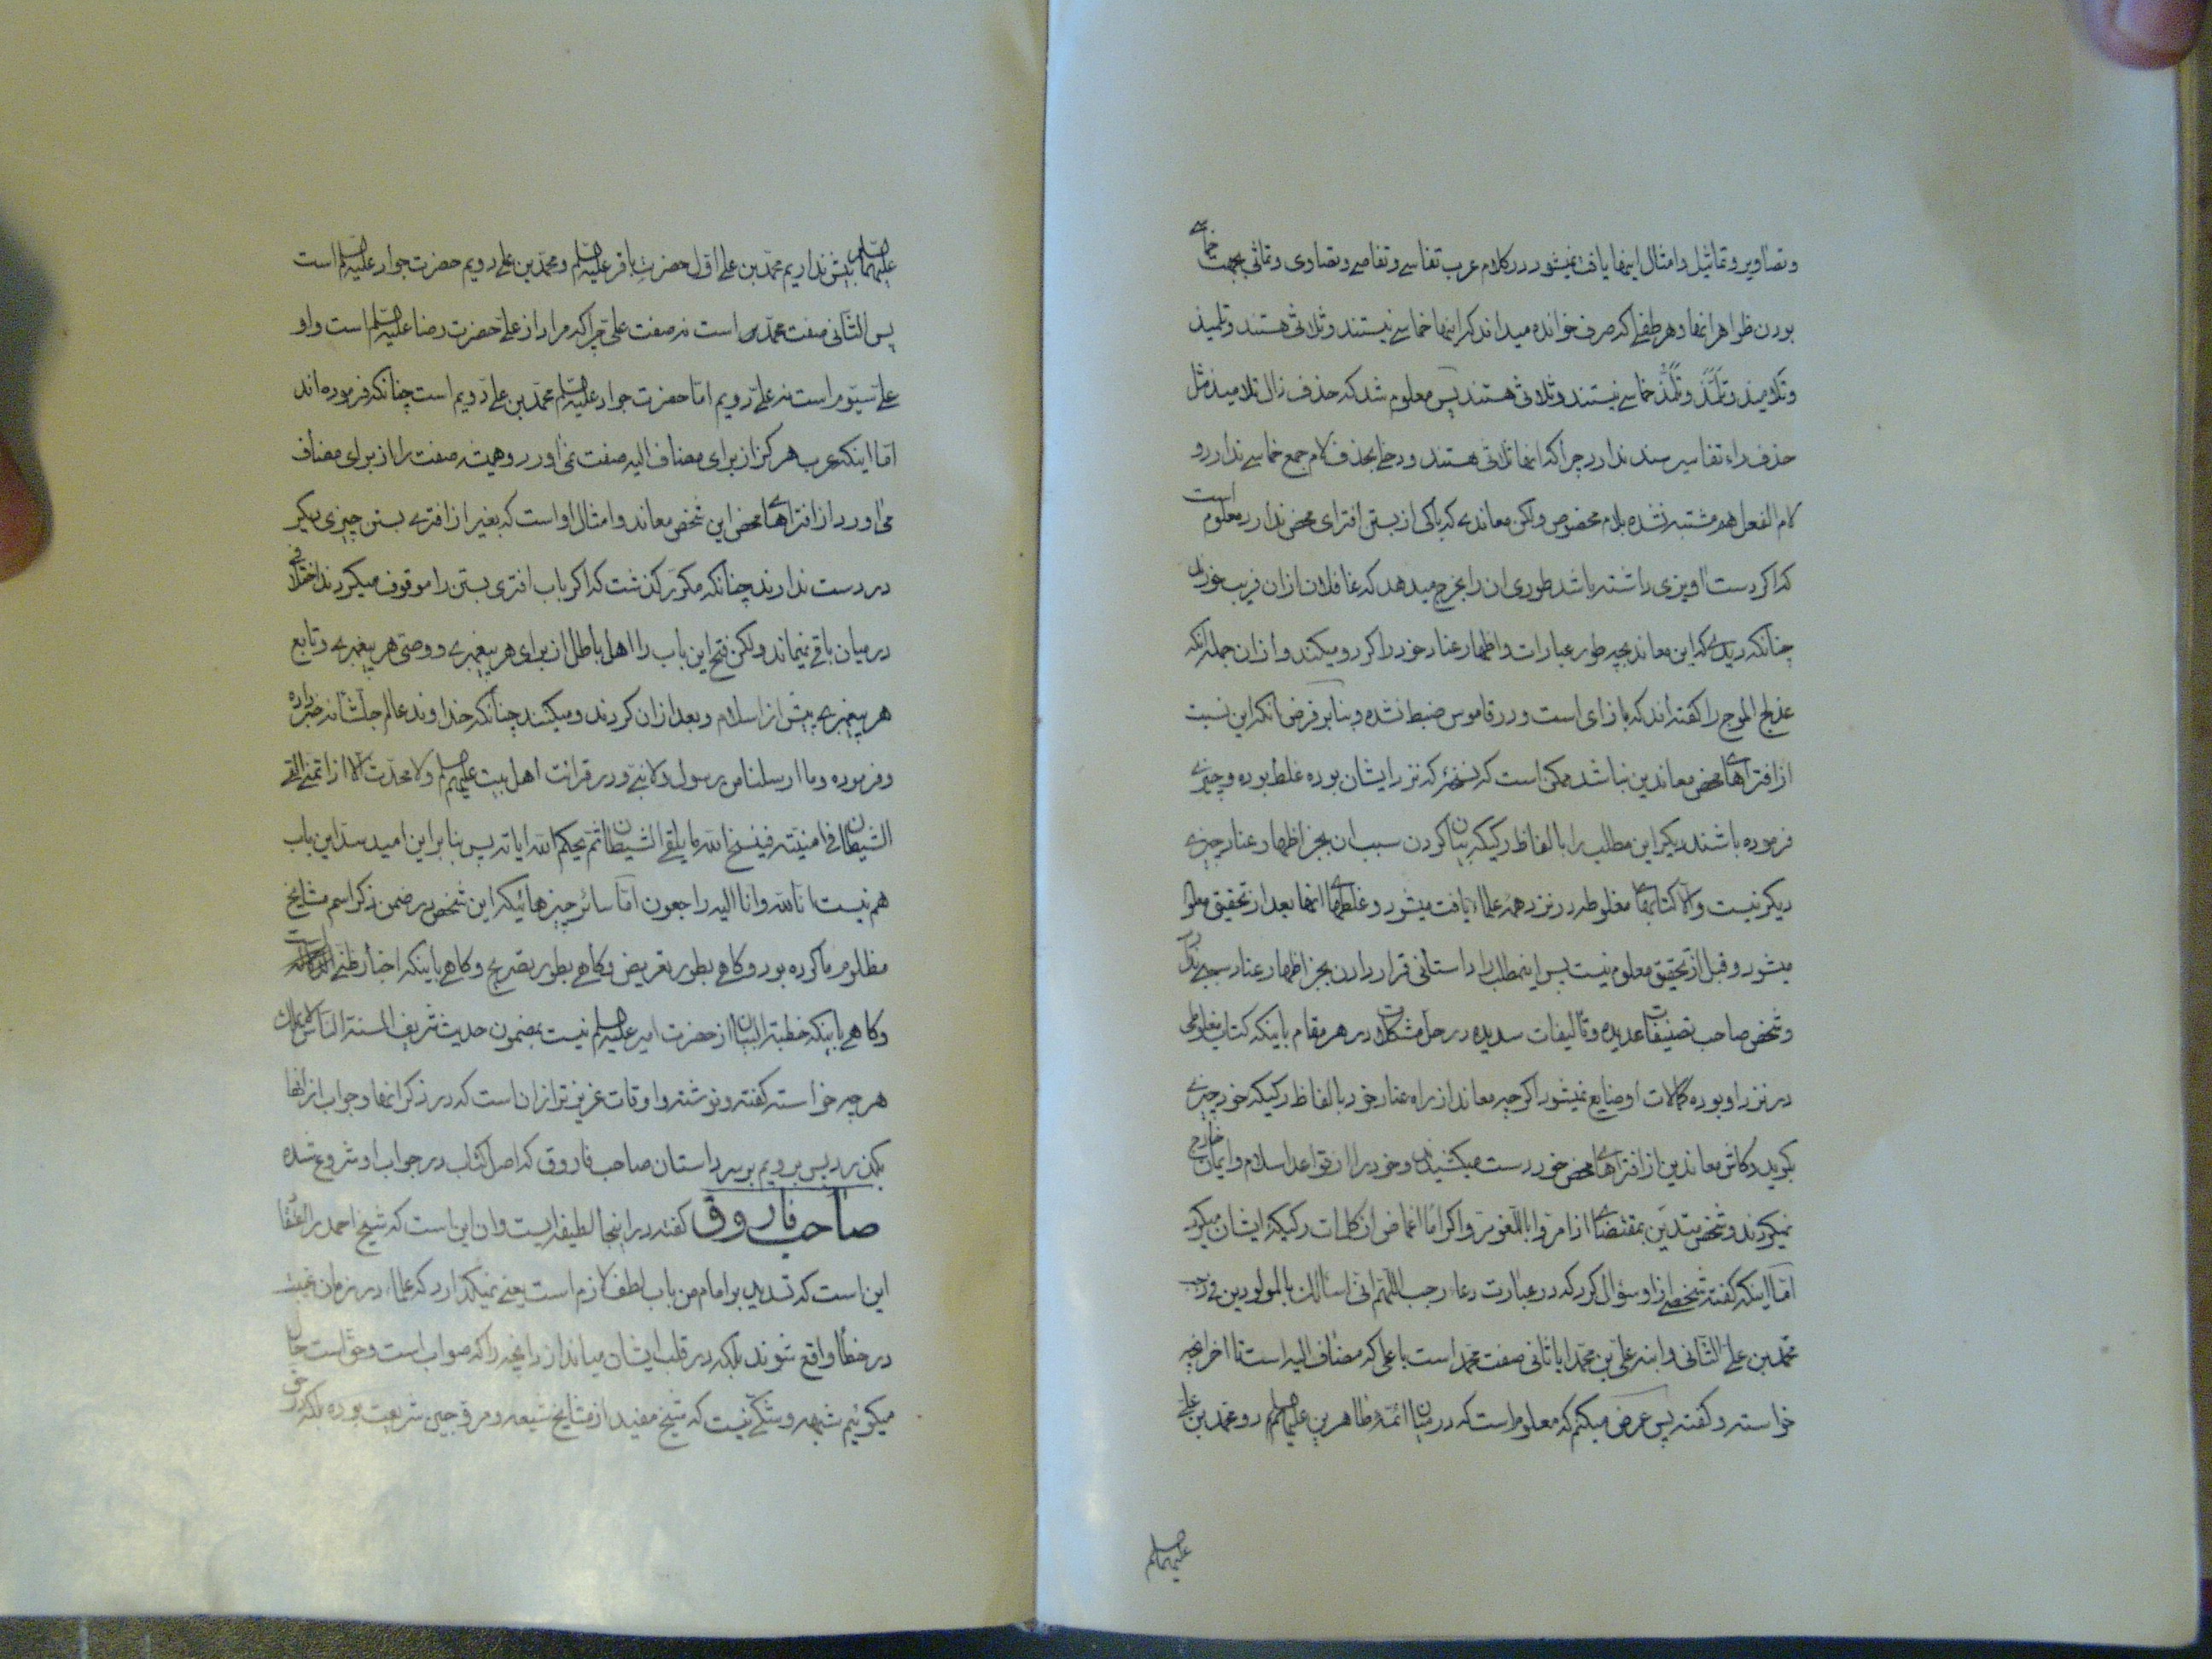 و تصاویر و تماثیل و امثال اینها یافت نمیشود در کلام عرب تفاسی و تفاصی و تصاوی و تماثی بجهت خماسی
بودن ظواهر انها و هر طفلی که صرف خوانده میداند که اینها خماسی نیستند و ثلاثی هستند و تلمیذ
و تلامیذ و تلمّذ و تلمّذ خماسی نیستند و ثلاثی هستند پس معلوم شد که حذف ذال تلامیذ مثل
حذف راء تفاسیر سند ندارد چرا که انها ثلاثی هستند و دخلی بحذف لام جمع خماسی ندارد و
لام الفعل هم مشتبه نشده بلام مخصوص ولکن معاندی که باکی از بستن افترای محض ندارد معلوم است
که اگر دست اویزی داشته باشد طوری ان را بخرج میدهد که غافلان از ان فریب خورند
چنانکه دیدی که این معاند بچه طور عبارات و اظهار عناد خود را کرد و میکند و از ان جمله انکه
عذلج الموج را گفته اند که با زای است و در قاموس ضبط نشده و بنابر فرض انکه این نسبت
از افتراهای محض معاندین نباشد ممکن است که نسخه که نزد ایشان بوده غلط بوده و چیزی
فرموده باشند دیگر این مطلب را بالفاظ رکیکه بیان کردن سبب ان بجز اظهار عناد چیزی
دیگر نیست و الا کتابهای مغلوطه در نزد همه علماء یافت میشود و غلطهای انها بعد از تحقیق معلوم
میشود و قبل از تحقیق معلوم نیست پس اینمطلب را داستانی قرار دادن بجز اظهار عناد سببی ندارد
و شخص صاحب تصنیفات عدیده و تالیفات سدیده در حل مشکلات در هر مقام باینکه کتاب مغلوطی
در نزد او بوده کمالات او ضایع نمیشود اگر چه معاند از راه عناد خود بالفاظ رکیکه خود چیزی
بگوید و کاش معاندین از افتراهای محض خود دست میکشیدند و خود را از قواعد اسلام و ایمان خارج
نمیکردند و شخص متدین بمقتضای اذا مروا باللغو مروا کراما اغماض از کلمات رکیکه ایشان میکرد
اما اینکه گفته شخصی از او سؤال کرد که در عبارت دعاء رجب اللهم انی اسألک بالمولودین فی رجب
محمد بن علی الثانی و ابنه علی بن محمد ایا ثانی صفت محمد است یا علی که مضاف الیه است تا اخر انچه
خواسته و گفته پس عرض میکنم که معلوم است که در میان ائمه طاهرین علیهم السلم دو محمد بن علی
علیهما السلم
علیهما السلم بیش نداریم محمد بن علی اول حضرت باقر علیه السلم و محمد بن علی دویم حضرت جواد علیه السلم است
پس الثانی صفت محمد است نه صفت علی چرا که مراد از علی حضرت رضا علیه السلم است و او
علی سیوم است نه علی دویم اما حضرت جواد علیه السلم محمد بن علی دویم است چنانکه فرموده اند
اما اینکه عرب هرگز از برای مضاف الیه صفت نمی اورد و همیشه صفت را از برای مضاف
می اورد از افتراهای محض این شخص معاند و امثال او است که بغیر از افتری بستن چیزی دیگر
در دست ندارند چنانکه مکرر گذشت که اگر باب افتری بستن را موقوف میکردند اختلافی
در میان باقی نمیماند ولکن فتح این باب را اهل باطل از برای هر پیغمبری و وصی هر پیغمبری و تابع
هر پیغمبری پیش از اسلام و بعد از ان کردند و میکنند چنانکه خداوند عالم جلشانه خبر داده
و فرموده و ما ارسلنا من رسول و لا نبی و در قرائت اهل بیت علیهم السلم و لا محدث الا اذا تمنی القی
الشیطان فی امنیته فینسخ الله ما یلقی الشیطان ثم یحکم الله ایاته پس بنابر این امید سد این باب
هم نیست انا لله و انا الیه راجعون اما سائر چیزهائیکه این شخص در ضمن ذکر اسم مشایخ
مظلوم ما کرده بود و کاهی بطور تعریض و کاهی بطور تصریح و کاهی باینکه اخبار ظنی
و کاهی باینکه خطبة البیان از حضرت امیر علیه السلم نیست بمضمون حدیث شریف السنة الناس
هر چه خواسته گفته و نوشته و اوقات عزیزتر از ان است که در ذکر انها و جواب از انها
بگذرد پس برویم بر سر داستان صاحب فاروق که اصل کتاب در جواب او شروع شده
صاحب فاروق گفته در اینجا لطیفه ایست و ان این است که شیخ احمد را اعتقاد
این است که تسدید بر امام من باب لطف لازم است یعنی نمیگذارد که علماء در زمان غیبت
در خطا واقع شوند بلکه در قلب ایشان میاندازد انچه را که صواب است و حق است حال
میگوئیم شبهه و شکی نیست که شیخ مفید از مشایخ شیعه و مروجین شریعت بوده بلکه در حق